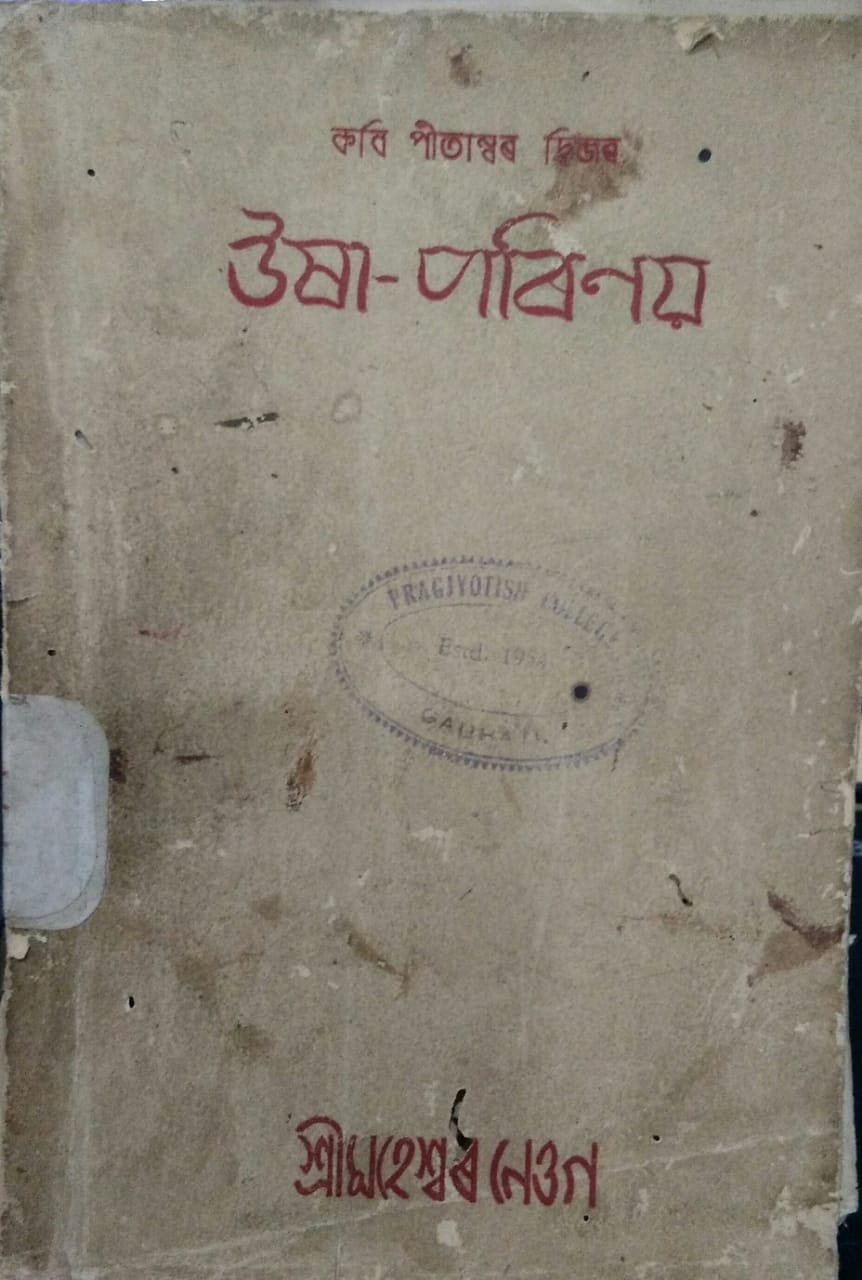 কবি পীতাম্বৰ দ্বিজৰ
ঊষা-পৰিণয়
PRAGJYOTISH COLLEGE
Estd. 1954
GAUHATI.
শ্ৰীমহেশ্বৰ নেওগ